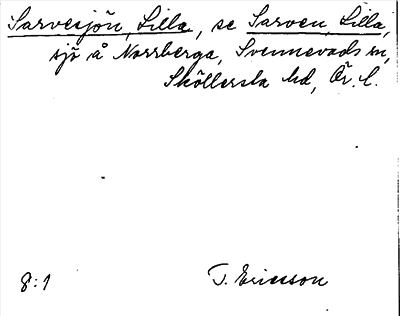 Sarvesjön, Lilla, se Sarven, Lilla,
sjö å Norrberga, Svennevads sn,
Sköllersta hd, Ör. l.
8:1 T. Ericsson